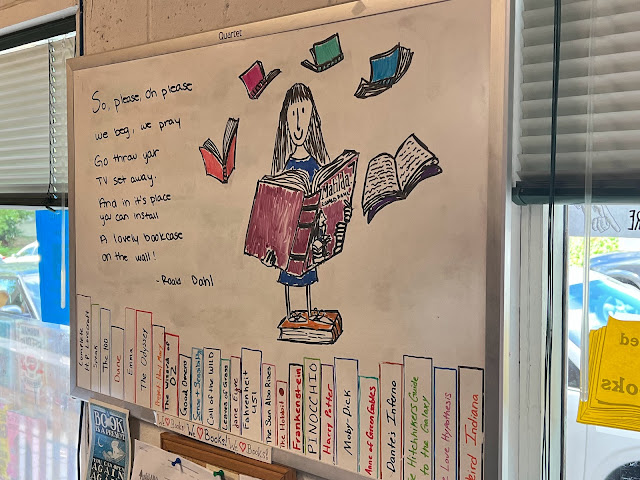 Quartet
So, please, oh please
we beg, we pray
Go throw yor
TV set away.
And in it's place
you can install
A lovely bookcase
on the wall!
- Roald Dahl
Matilda
Roald Dahl
Complete
H.P. Lovecraft
Speak
The 100
Dune
Emma
The Odyssey
The Wizard of
OZ
Good Omens
Sense + Sensibility
Call of the Wild
Leaves of Grass
Jane Eyre
Fahrenheit
451
The Sun Also Rises
The Hobbit
Frankenstein
PINOCCHIO
Harry Potter
Moby Dick
Anne of Green Gables
Dante's Inferno
Hitchhikers Guide
to the Galaxy
Love Hypothesis
Weird Indiana
We ♥ Books!
We ♥ Books!
We ♥ Books!
BOOK